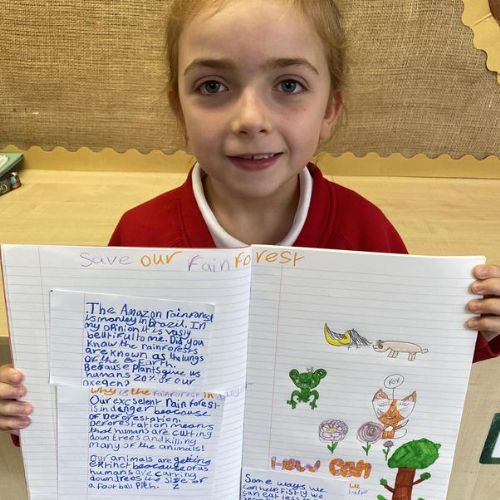 Save our rainforest
The Amazon rainforest
is manley in Brazil. In
my opinion it is vasly
beutiful to me. Did you
know the rainforests
are known as the lungs
of the earth.
Because plants give us
humans 20% of our
oxegen?
why is the rainforest in
Our excSelent Rain forest
is in danger beacause
of Deforestation.
Deforestation means
that humans are cutting
down trees and killing
many of the animals.
Our animals are getting
extinct beacause of us
humans are cutting
down trees the size of
a foot ball pitch.
How can
we
Some ways we
can
can eat less